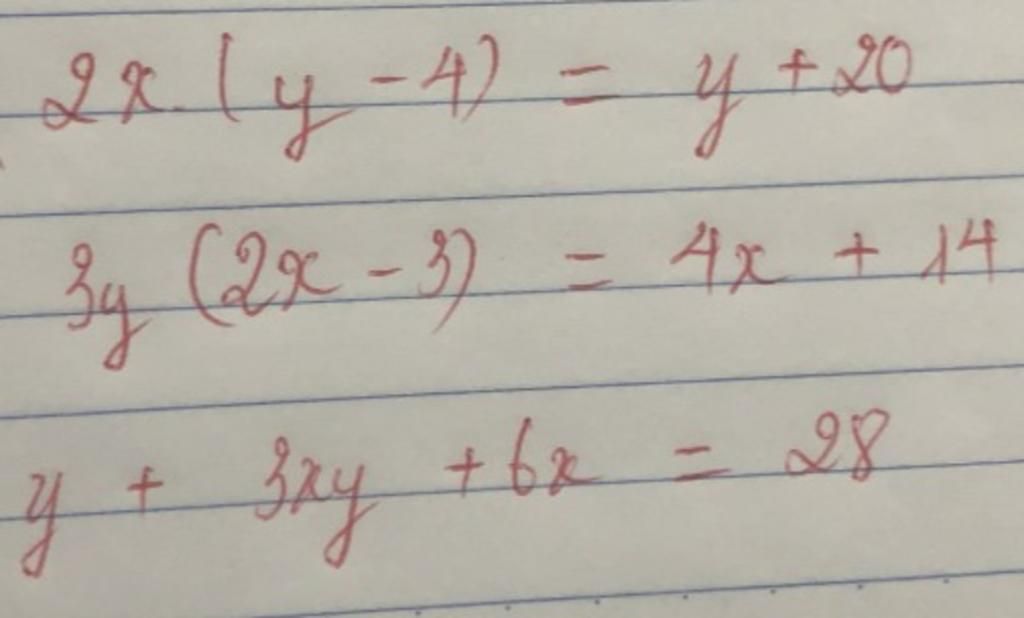 2x.(y - 4) = y + 20
3y (2x - 3) = 4x + 14
y + 3xy + 6x = 28